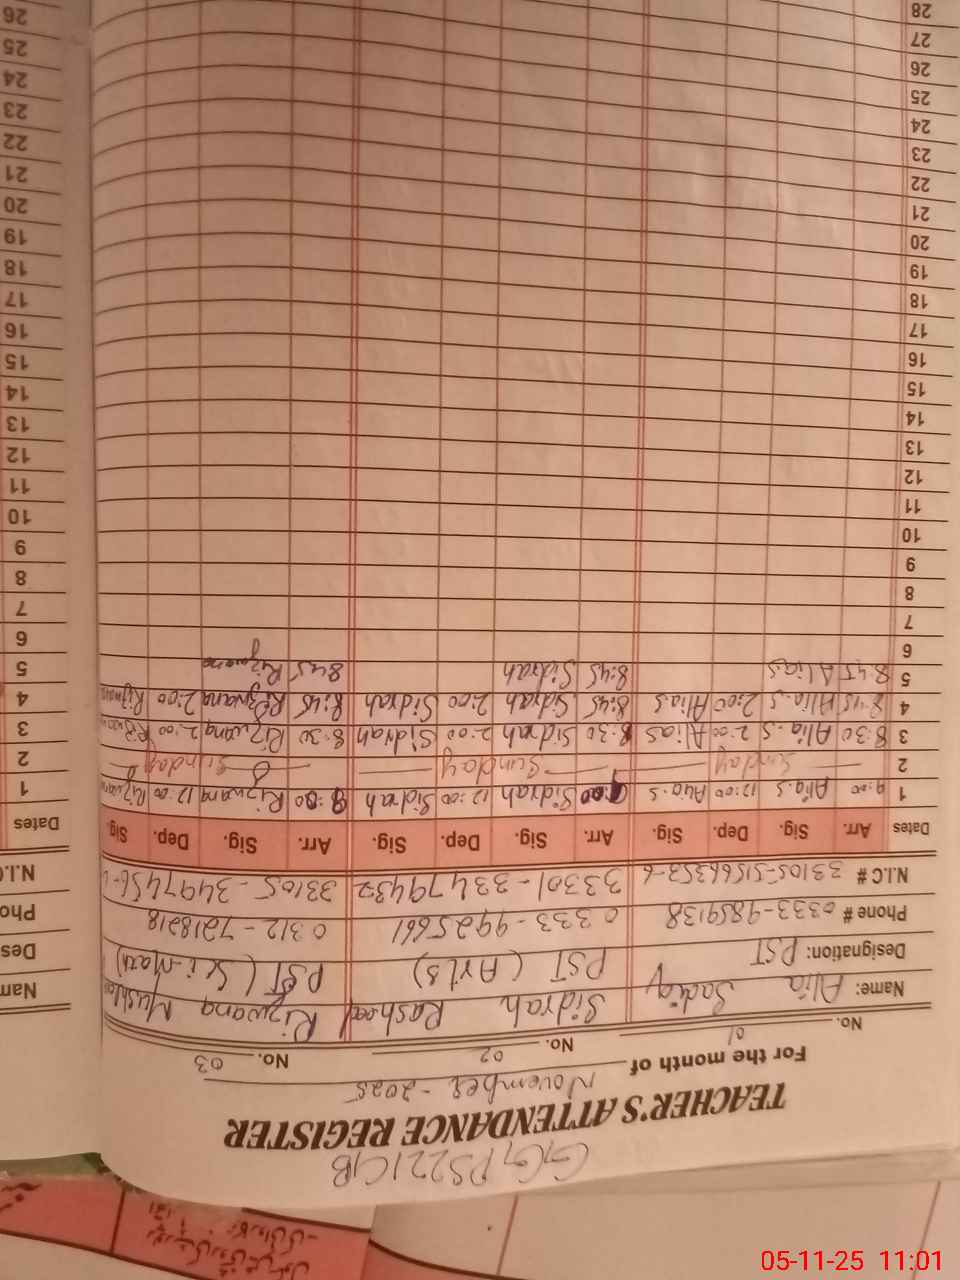 GGPS221GB
TEACHER'S ATTENDANCE REGISTER
For the month of November - 2025
No. 01 No. 02 No. 03
Name: Alia Sadiq Sidrah Rasheed Rizwana
Designation: PST PST (Arts) PST (Sci-Math)
Phone # 0333-9859138 0333-9925661 0312-7218218
N.I.C # 33105-5156353-6 33301-3347943 33105-3497456-
Dates Arr. Sig. Dep. Sig. Arr. Sig. Dep. Sig. Arr. Sig. Dep. Sig.
1 9:00 Alia.S 12:00 Alia.S 9:00 Sidrah 12:00 Sidrah 9:00 Rizwana 12:00 Rizwana
2 Sunday Sunday Sunday
3 8:30 Alia.S 2:00 Alia S 8:30 Sidrah 2:00 Sidrah 8:30 Rizwana 2:00 Rizwana
4 8:45 Alia.S 2:00 Alia.S 8:45 Sidrah 2:00 Sidrah 8:45 Rizwana 2:00 Rizwana
5 8:45 Alia S 8:45 Sidrah 8:45 Rizwana
6
7
8
9
10
11
12
13
14
15
16
17
18
19
20
21
22
23
24
25
26
27
28
Nam
Des
Pho
N.I.C
Dates
1
2
3
4
5
6
7
8
9
10
11
12
13
14
15
16
17
18
19
20
21
22
23
24
25
26
05-11-25 11:01